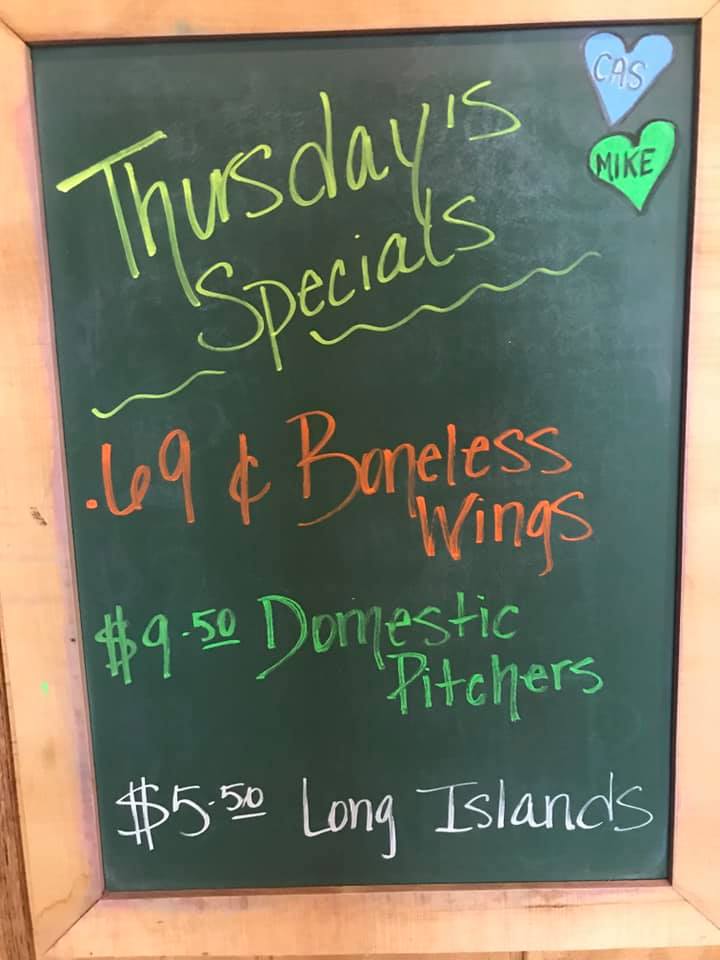 CAS
MIKE
Thursday's
Specials
.69 ¢ Boneless
Wings
$9.50 Domestic
Pitchers
$5.50 Long Islands